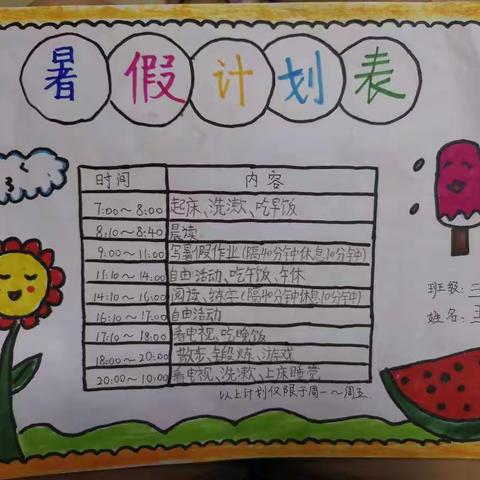 暑假计划表
时间 内容
7:00~8:00 起床、洗漱、吃早饭
8:10~8:40 晨读
9:00~11:00 写暑假作业(隔40分钟休息10分钟)
11:10~14:00 自由活动、吃午饭、午休
14:10~16:00 阅读、练字(隔40分钟休息10分钟)
16:10~17:00 自由活动
17:10~18:00 看电视、吃晚饭
18:00~20:00 散步、锻炼、游戏
20:00~10:00 看电视、洗漱、上床睡觉
以上计划仅限于周一~周五
班级:
姓名: